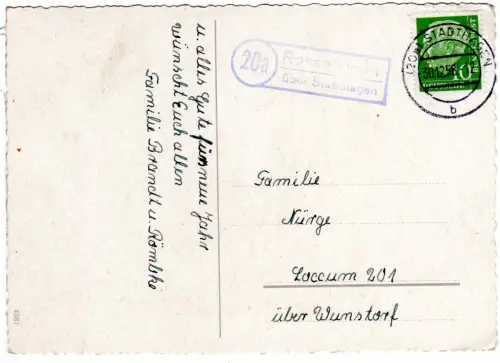 u. alles Gute fürs neue Jahr
wünscht Euch allen
Familie Brandt u. Römbke
20a
über Stadthagen
(20a) STADTHAGEN
30.12.56
b
10
Familie
Nürge
Loccum 201
über Wunstorf